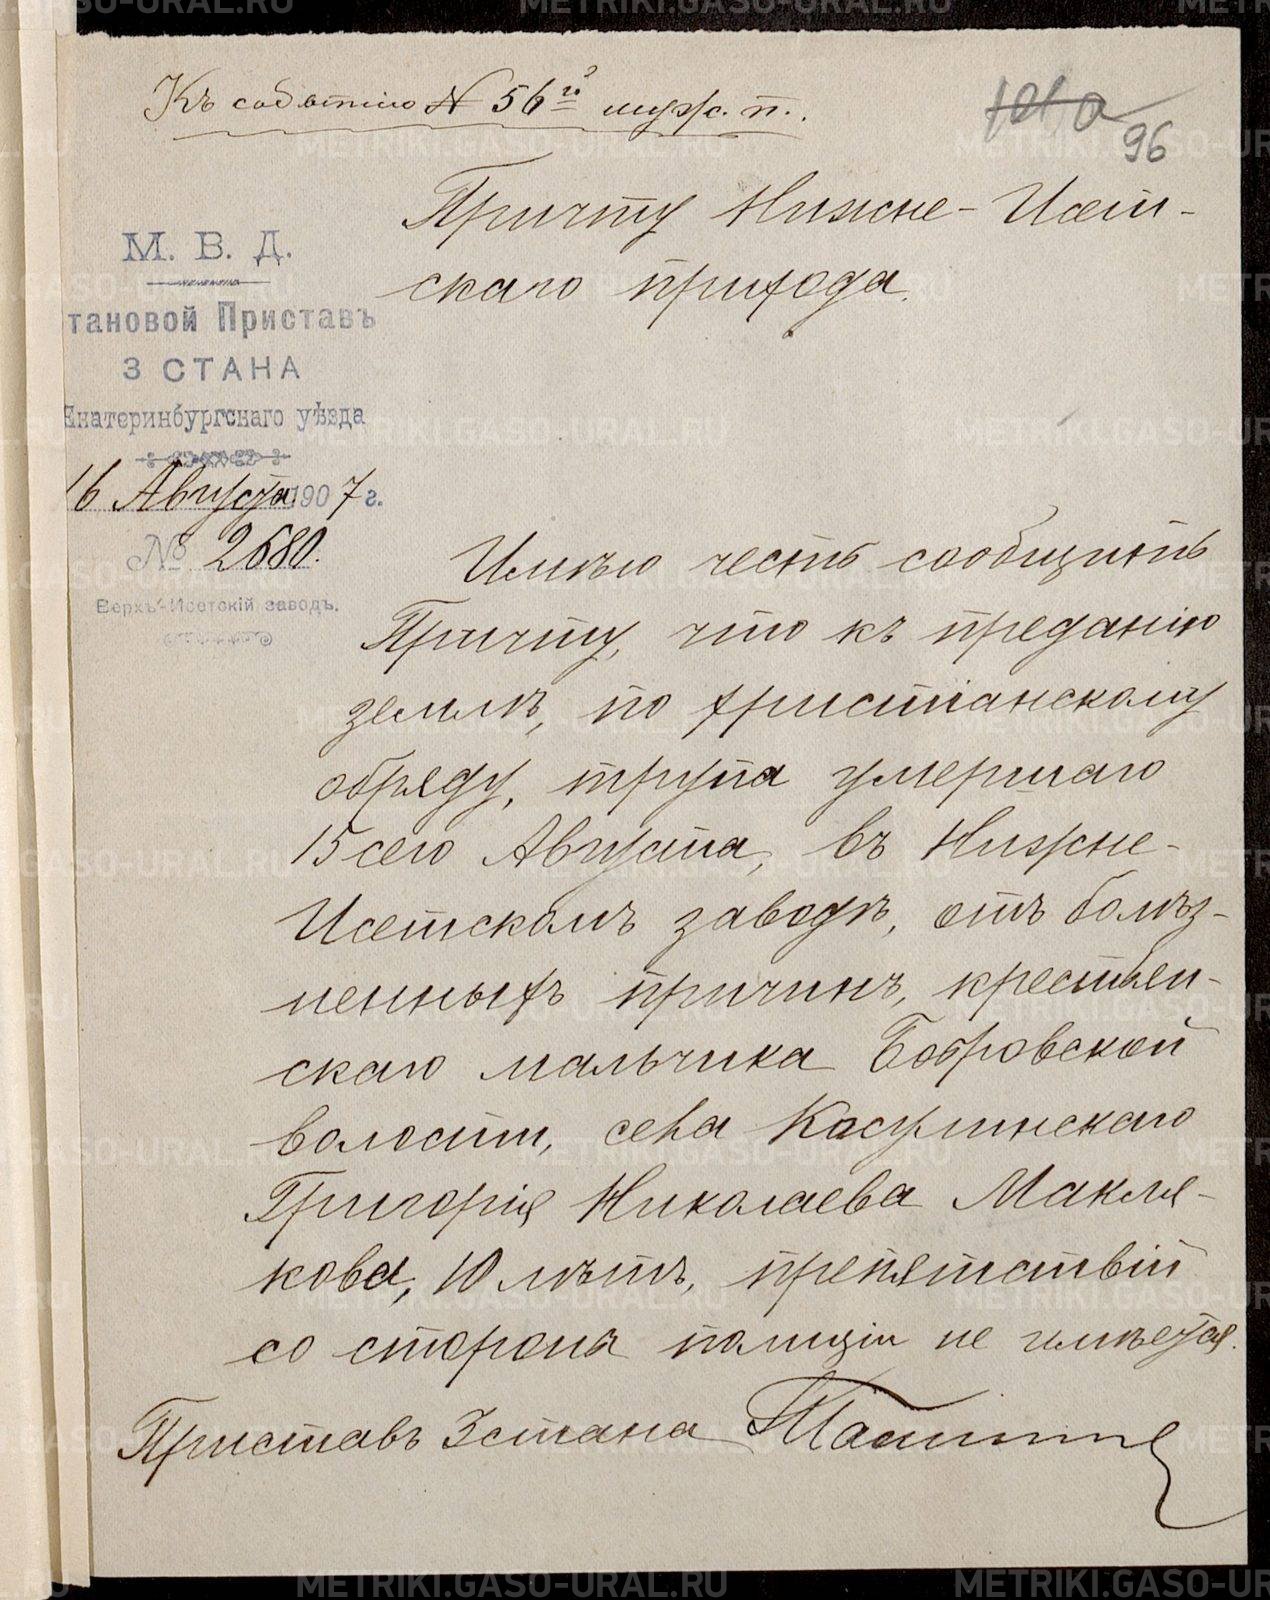 Къ событію № 56го муж. п.
101а
96
Причту Нижне-Исет-
скаго прихода.
М. В. Д.
тановой Приставъ
3 СТАНА
Екатеринбургскаго уѣзда
16 Августа 1907 г.
№ 2680.
Верхъ-Исетскій заводъ.
Имѣю честь сообщить
Причту, что къ преданію
землѣ, по христіанскому
обряду, трупа умершаго
15 сего Августа, въ Нижне-
Исетскомъ заводѣ, отъ болѣз-
ненныхъ причинъ, крестьян-
скаго мальчика Бобровской
волости, села
Григорія Николаева Макля-
кова, 10 лѣтъ, препятствій
со стороны полиціи не имѣется.
Приставъ 3 стана
METRIKI.GASO-URAL.RU